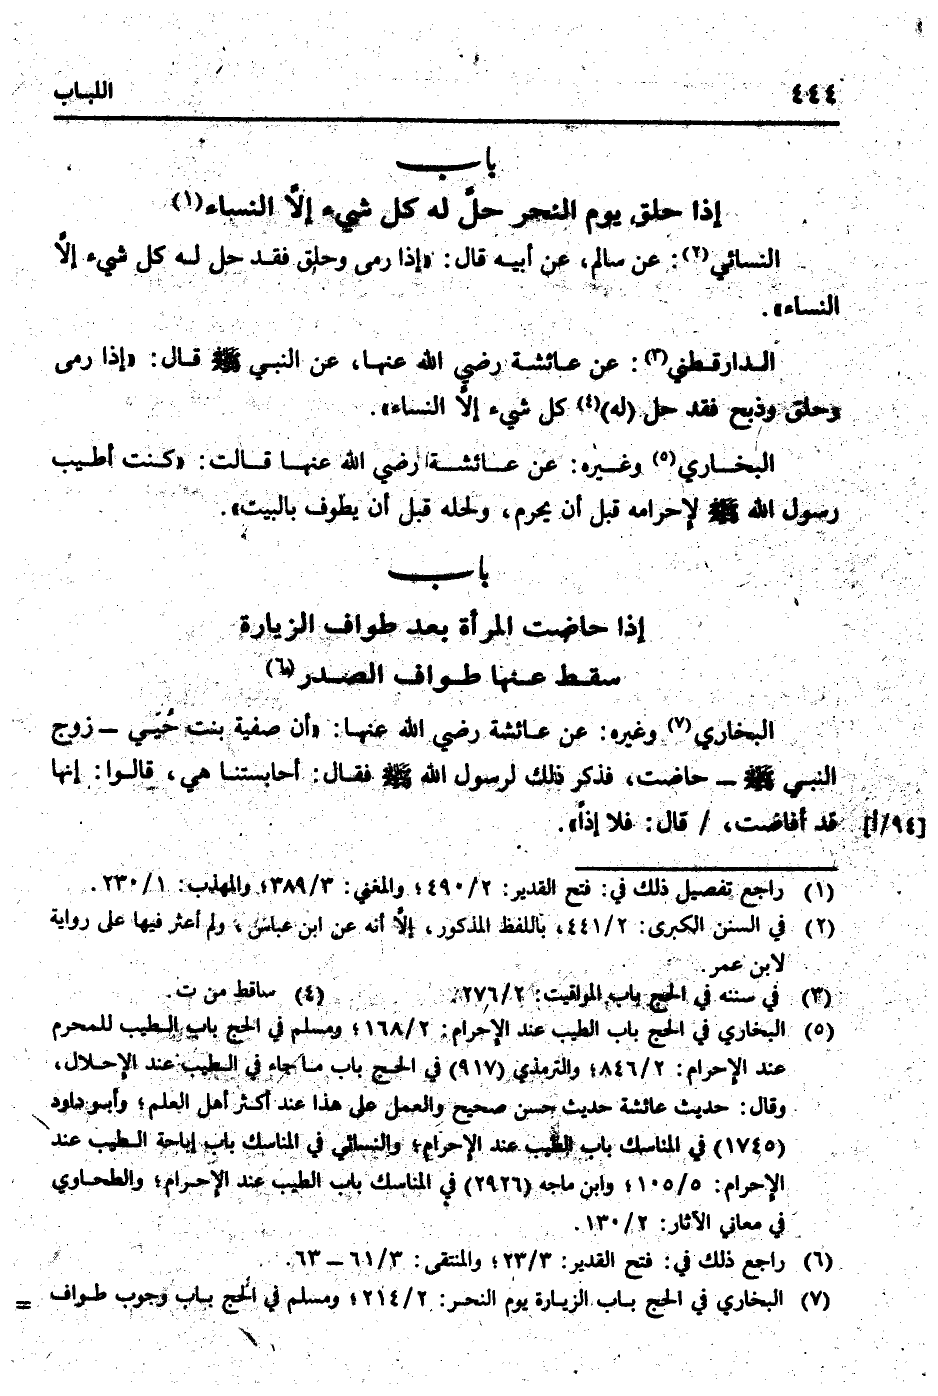 ٤٤٤ اللبـاب
بـاب
إذا حلق يوم النحر حلَّ له كل شيء إلَّا النساء(١)
النسائي(٢): عن سالم، عن أبيـه قال: «إذا رمى وحلق فقـد حل لـه كل شيء إلَّا
النساء».
الـدارقـطني(٣): عن عـائشـة رضي الله عنهـا، عن النبـي ﷺ قـال: «إذا رمى
وحلق وذبح فقد حل (له)(٤) كل شيء إلَّا النساء».
البخـاري(٥) وغـيره: عن عـائشـة رضي الله عنهـا قـالت: «كـنت أطـيب
رسول الله ﷺ لإحرامه قبل أن يحرم، ولحله قبل أن يطوف بالبيت».
بـاب
إذا حاضت المرأة بعد طواف الزيارة
سقـط عـنها طـواف الصـدر(٦)
البخاري(٧) وغيره: عن عـائشة رضي الله عنهـا: «أن صفية بنت حُيَـي ــ زوج
النبـي ﷺ ــ حاضت، فذكر ذلك لرسول الله ﷺ فقـال: أحابستنـا هي، قالـوا: إنها
قد أفاضت، / قال: فلا إذاً». [٩٤/أ]
(١) راجع تفصيل ذلك في: فتح القدير: ٤٩٠/٢؛ والمغني: ٣٨٩/٣؛ والمهذب: ٢٣٠/١.
(٢) في السنن الكبرى: ٤٤١/٢، باللفظ المذكور، إلَّا أنه عن ابن عباس، ولم أعثر فيها على رواية
لابن عمر.
(٣) في سننه في الحج باب المواقيت: ٢٧٦/٢. (٤) ساقط من ت.
(٥) البخاري في الحج باب الطيب عند الإحرام: ١٦٨/٢؛ ومسلم في الحج باب الـطيب للمحرم
عند الإحرام: ٨٤٦/٢؛ والترمذي (٩١٧) في الحـج باب مـا جاء في الـطيب عند الإحـلال،
وقال: حديث عائشة حديث حسن صحيح والعمل على هذا عند أكـثر أهل العلم؛ وأبـو داود
(١٧٤٥) في المناسك باب الطيب عند الإحرام؛ والنسائي في المناسك باب إباحة الـطيب عند
الإحرام: ١٠٥/٥؛ وابن ماجه (٢٩٢٦) في المناسك باب الطيب عند الإحـرام؛ والطحـاوي
في معاني الآثار: ١٣٠/٢.
(٦) راجع ذلك في: فتح القدير: ٢٣/٣؛ والمنتقى: ٦١/٣ ــ ٦٣.
(٧) البخاري في الحج بـاب الزيـارة يوم النحـر: ٢١٤/٢؛ ومسلم في الحج بـاب وجوب طـواف =